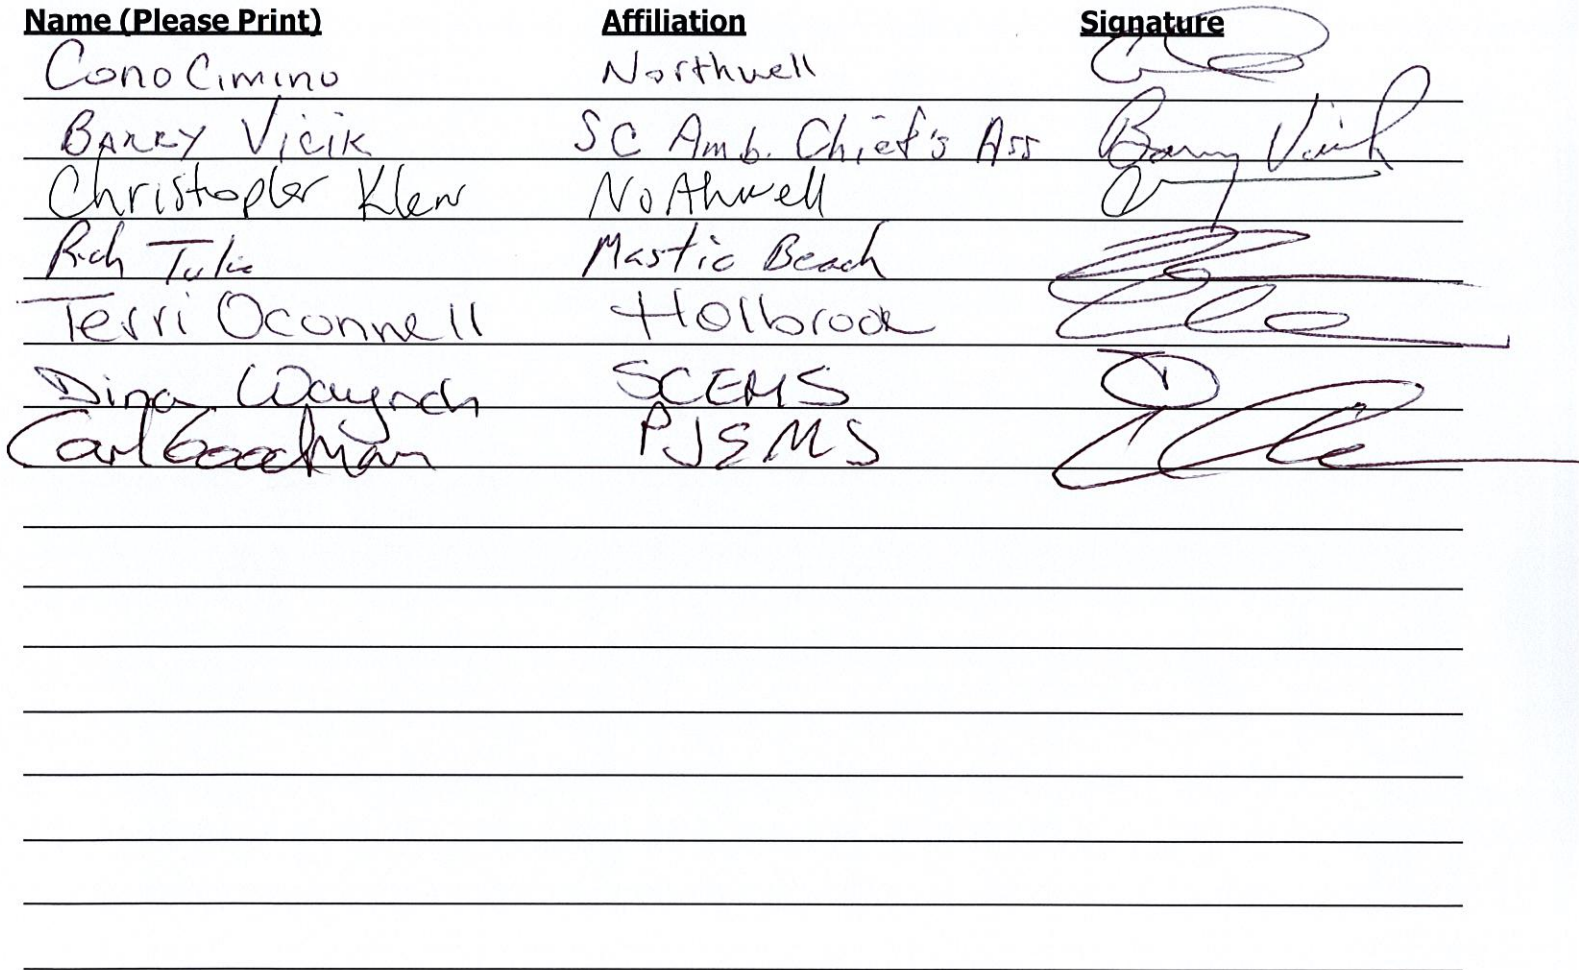 Name (Please Print) Affiliation Signature
Cono Cimino Northwell
Barry Vicik SC Amb. Chief's Ass Barry Vicik
Christopler Northwell
Rich Mastic Beach
Terri Oconnell Holbrook
Dina SCEMS
Carl Goodman PJEMS